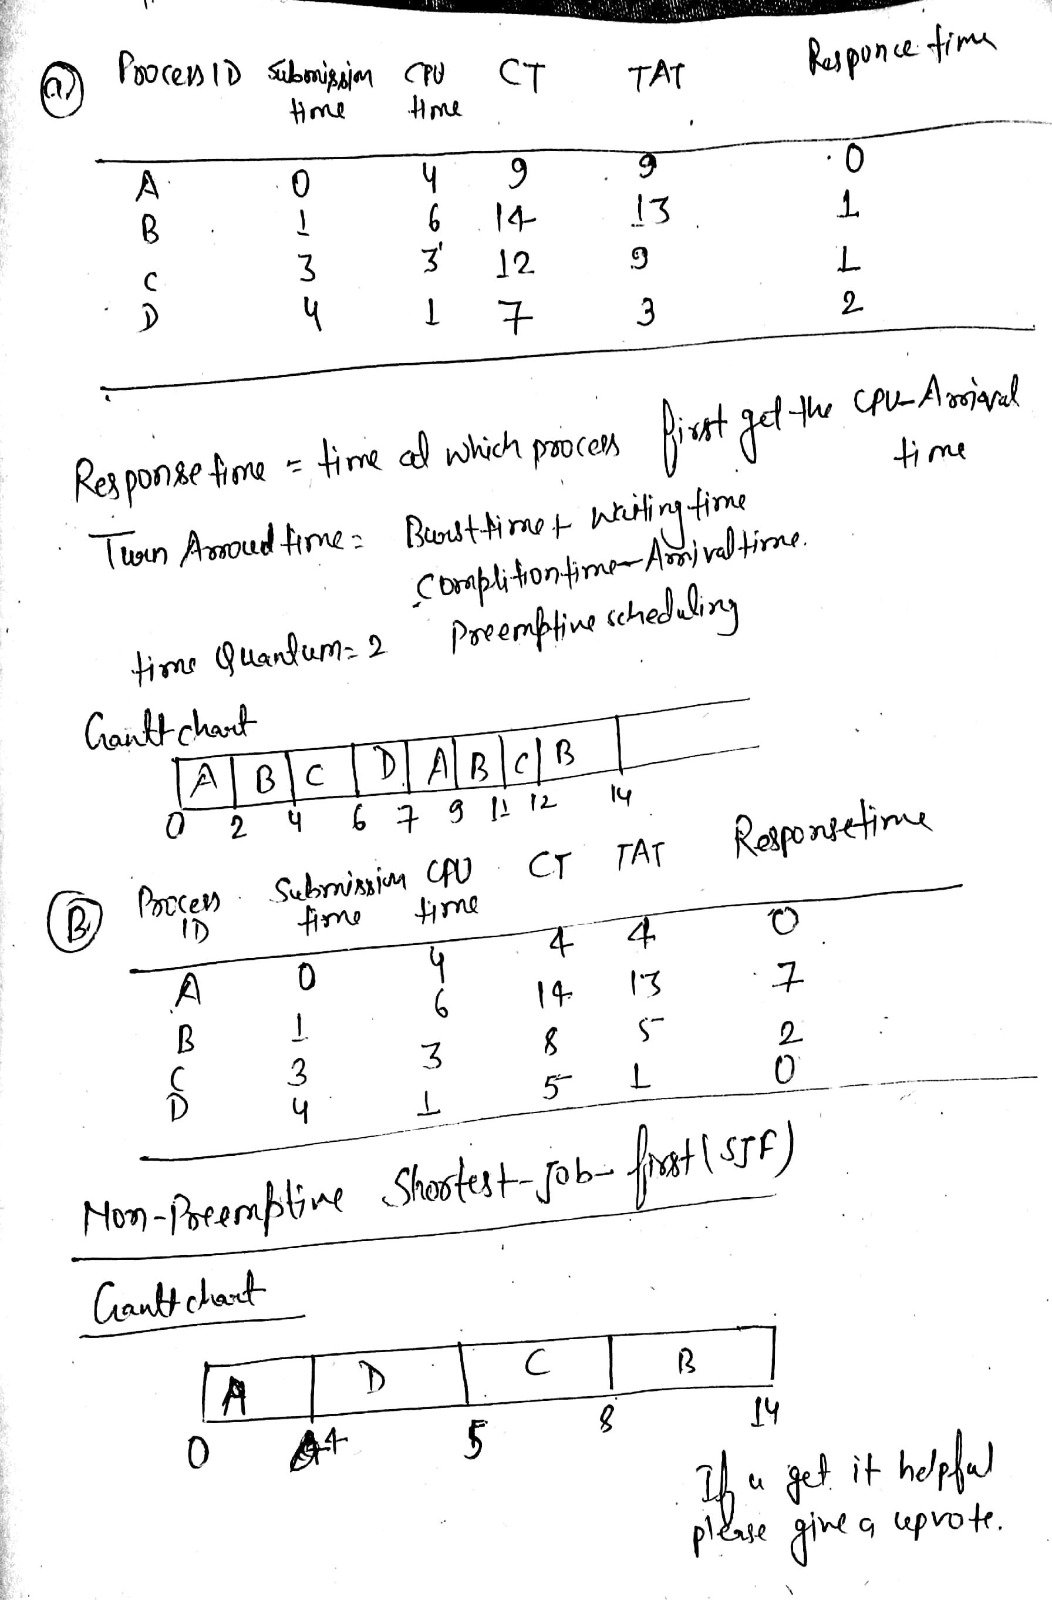 a) Process ID Submission time CPU time CT TAT Responce time
A 0 4 9 9 0
B 1 6 14 13 1
C 3 3 12 9 1
D 4 1 7 3 2
Response time = time at which process first get the CPU - Arrival time
Turn Arround time = Burst time + waiting time
Complition time - Arrival time.
time Quantum = 2 Preemptive scheduling
Gantt chart
A B C D A B C B
0 2 4 6 7 9 11 12 14
B) Process ID Submission time CPU time CT TAT Response time
A 0 4 4 4 0
B 1 6 14 13 7
C 3 3 8 5 2
D 4 1 5 1 0
Non-Preemptive Shortest-job-first (SJF)
Gantt chart
A D C B
0 4 5 8 14
If u get it helpful
please give a upvote.